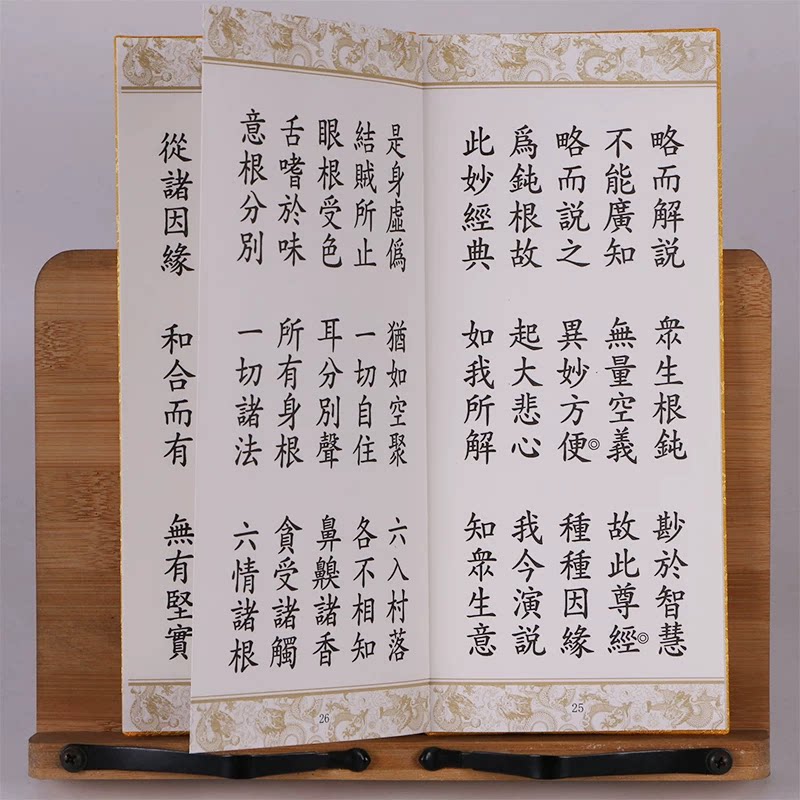 略而解說 眾生根鈍 尠於智慧
不能廣知 無量空義 故此尊經◎
略而說之 異妙方便◎ 種種因緣
爲鈍根故 起大悲心 我今演說
此妙經典 如我所解 知眾生意
25
是身虛僞 猶如空聚 六入村落
結賊所止 一切自住 各不相知
眼根受色 耳分別聲 鼻齅諸香
舌嗜於味 所有身根 貪受諸觸
意根分別 一切諸法 六情諸根
26
從諸因緣 和合而有 無有堅實